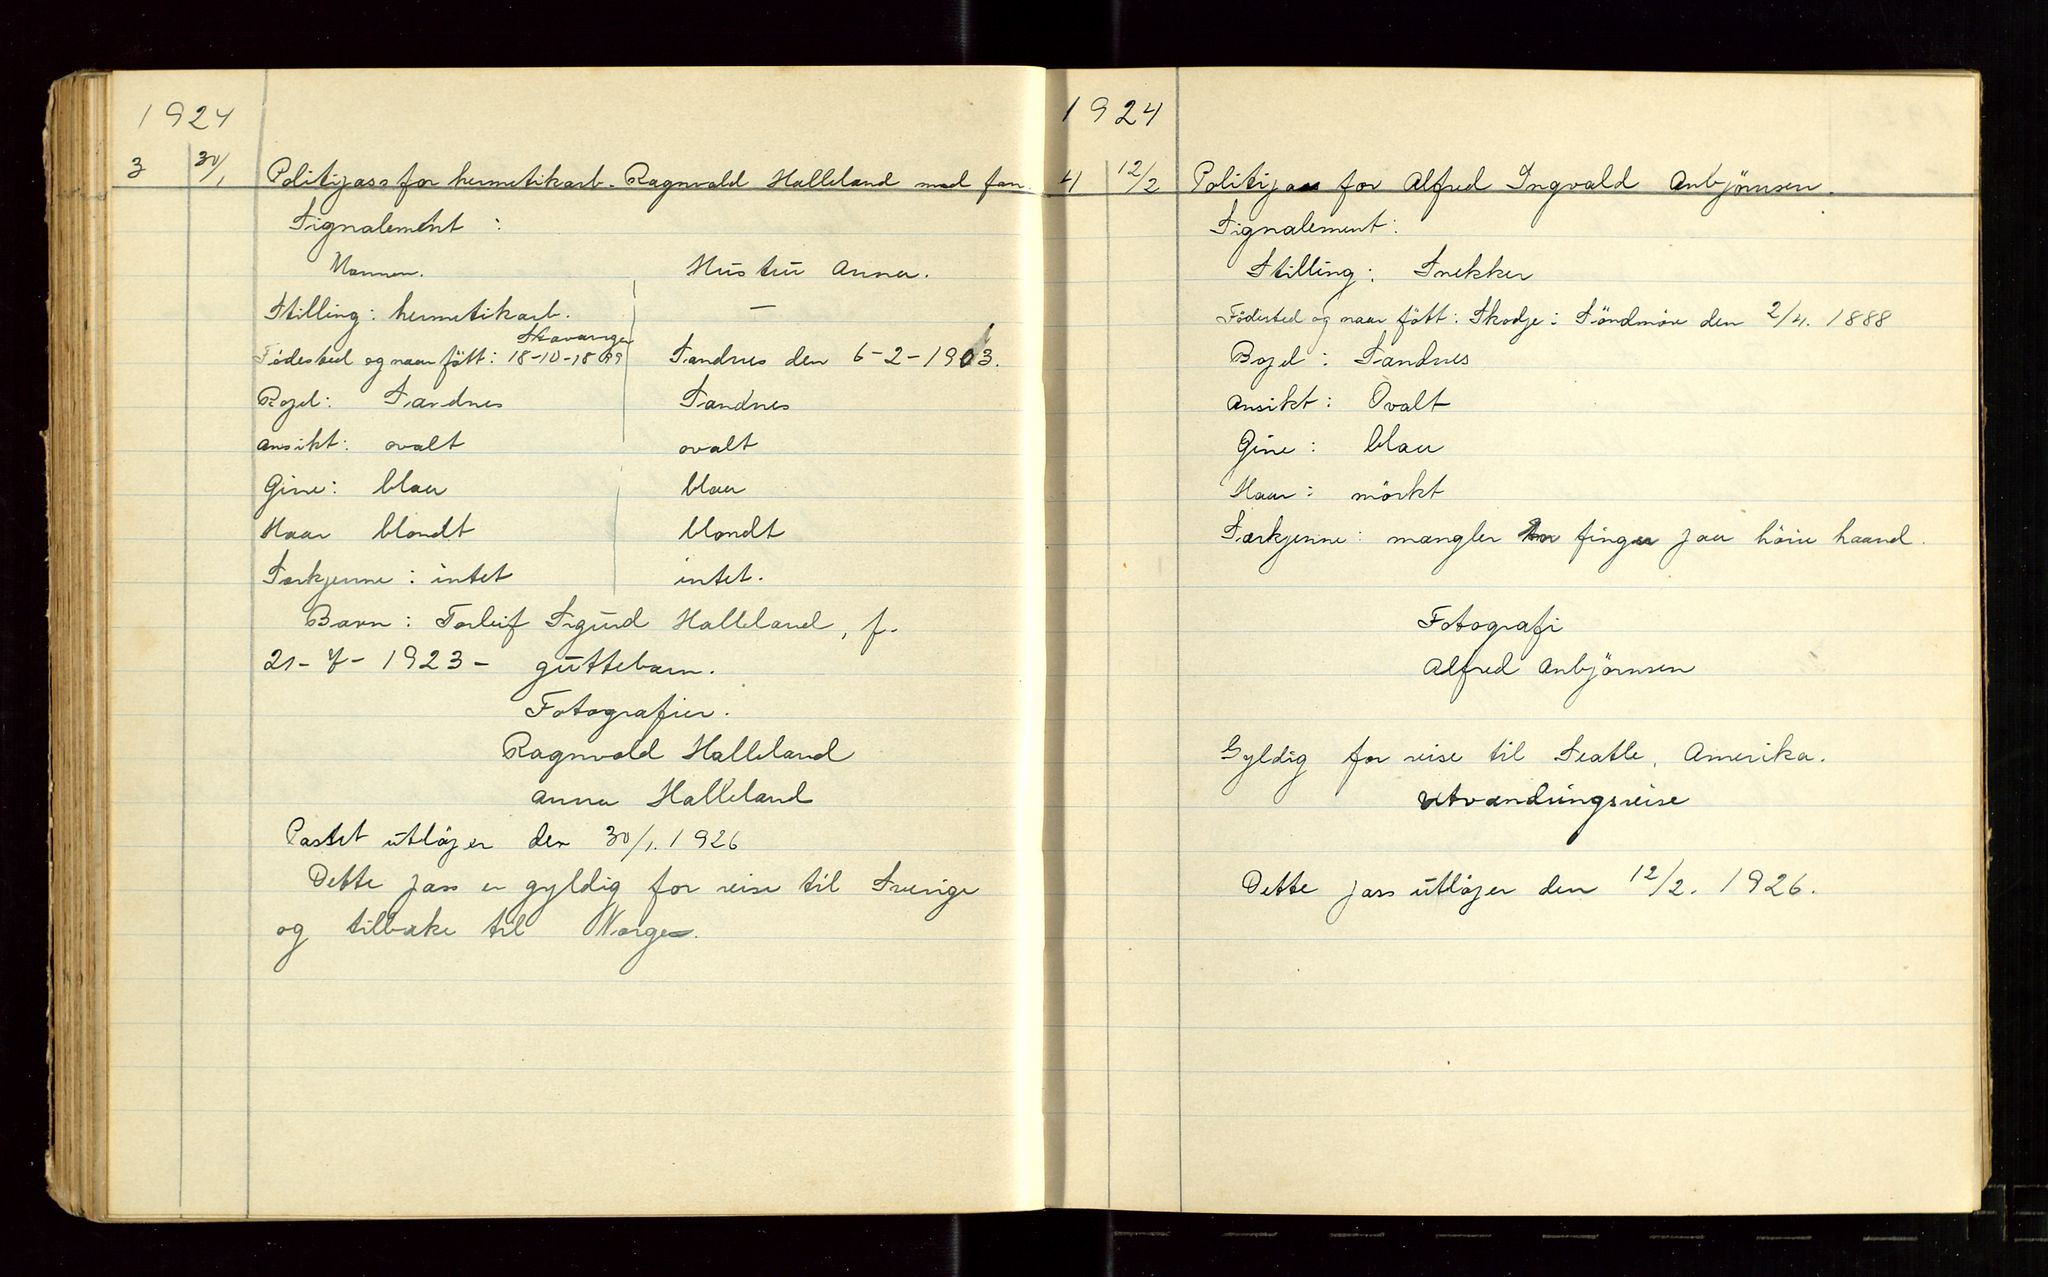 1924
3 30/1 Politipass for hermetikarb. Ragnvald Halleland med fam.
Signalement :
Mannen. Hustru Anna.
Stilling: hermetikarb. —
Stavanger
Födested og naar fött: 18-10-1899 Sandnes den 6-2-1903.
Bopel: Sandnes Sandnes
Ansikt: ovalt ovalt
Öine: blaa blaa
Haar blondt blondt
Særkjenne: intet intet.
Barn: Torleif Sigurd Halleland, f.
21-7-1923- guttebarn.
Fotografier.
Ragnvald Halleland
Anna Halleland
Passet utløper den 30/1. 1926
Dette pass er gyldig for reise til Sverige
og tilbake til Norge.
1924
4 12/2 Politipass for Alfred Ingvald Anbjörnsen.
Signalement:
Stilling: Snekker
Födested og naar fött: Skodje: Söndmöre den 2/4. 1888
Bopel: Sandnes
Ansikt: Ovalt
Öine: blaa
Haar: mörkt
Særkjenne: mangler en finger paa höire haand.
Fotografi
Alfred Anbjörnsen
Gyldig for reise til Seatle, Amerika.
Utvandringsreise
Dette pass utløper den 12/2. 1926.